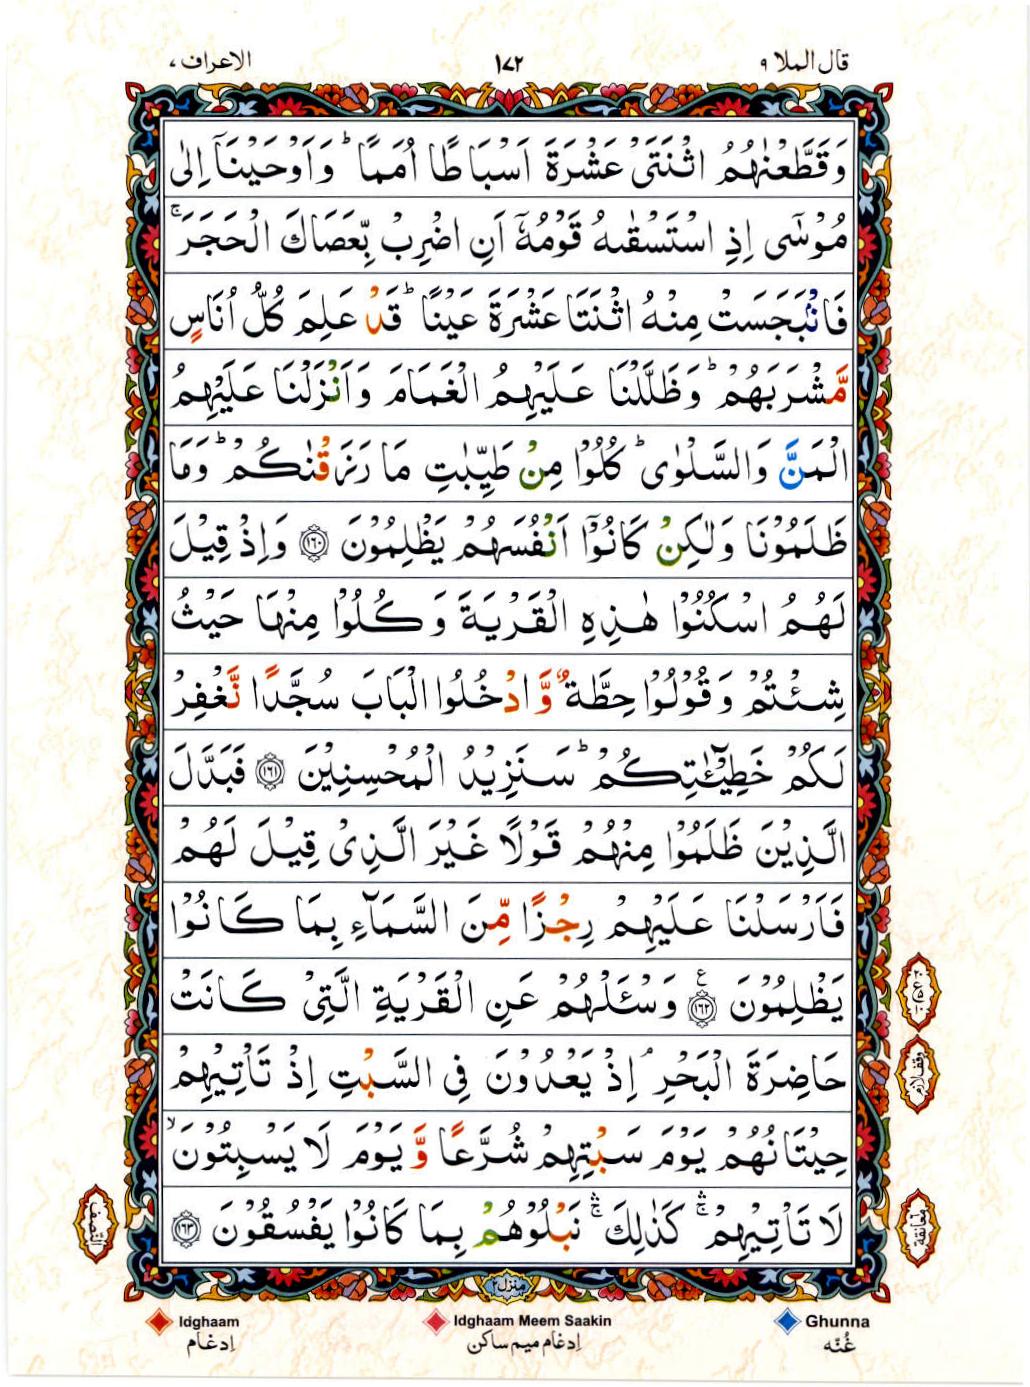 قال الملا ۹
١٧٢
الاعراف ۷
وَقَطَّعْنٰهُمُ اثْنَتَیْ عَشْرَةَ اَسْبَاطًا اُمَمًا ؕ وَاَوْحَیْنَاۤ اِلٰی
مُوْسٰۤی اِذِ اسْتَسْقٰىهُ قَوْمُهٗۤ اَنِ اضْرِبْ بِّعَصَاكَ الْحَجَرَ ۚ
فَانْۢبَجَسَتْ مِنْهُ اثْنَتَا عَشْرَةَ عَیْنًا ؕ قَدْ عَلِمَ كُلُّ اُنَاسٍ
مَّشْرَبَهُمْ ؕ وَظَلَّلْنَا عَلَیْهِمُ الْغَمَامَ وَاَنْزَلْنَا عَلَیْهِمُ
الْمَنَّ وَالسَّلْوٰی ؕ كُلُوْا مِنْ طَیِّبٰتِ مَا رَزَقْنٰكُمْ ؕ وَمَا
ظَلَمُوْنَا وَلٰكِنْ كَانُوْۤا اَنْفُسَهُمْ یَظْلِمُوْنَ ۝۱۶۰ وَاِذْ قِیْلَ
لَهُمُ اسْكُنُوْا هٰذِهِ الْقَرْیَةَ وَكُلُوْا مِنْهَا حَیْثُ
شِئْتُمْ وَقُوْلُوْا حِطَّةٌ وَّادْخُلُوا الْبَابَ سُجَّدًا نَّغْفِرْ
لَكُمْ خَطِیْٓـٰٔتِكُمْ ؕ سَنَزِیْدُ الْمُحْسِنِیْنَ ۝۱۶۱ فَبَدَّلَ
الَّذِیْنَ ظَلَمُوْا مِنْهُمْ قَوْلًا غَیْرَ الَّذِیْ قِیْلَ لَهُمْ
فَاَرْسَلْنَا عَلَیْهِمْ رِجْزًا مِّنَ السَّمَآءِ بِمَا كَانُوْا
یَظْلِمُوْنَ ۝۱۶۲ ع وَسْـَٔلْهُمْ عَنِ الْقَرْیَةِ الَّتِیْ كَانَتْ
حَاضِرَةَ الْبَحْرِ ۘ اِذْ یَعْدُوْنَ فِی السَّبْتِ اِذْ تَاْتِیْهِمْ
وقف لازم
حِیْتَانُهُمْ یَوْمَ سَبْتِهِمْ شُرَّعًا وَّیَوْمَ لَا یَسْبِتُوْنَ ۙ
لَا تَاْتِیْهِمْ ۛۚ كَذٰلِكَ ۛۚ نَبْلُوْهُمْ بِمَا كَانُوْا یَفْسُقُوْنَ ۝۱۶۳
معانقة
النّصف
منزل ۲
Idghaam Idghaam Meem Saakin Ghunna
اِدغام اِدغام میم ساکن غُنّه